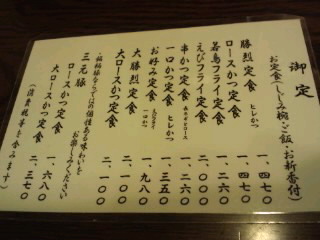 御定食
お定食(しじみ椀・ご飯・お新香付)
勝烈定食 ヒレかつ 一、四七〇
ロースかつ定食 一、四七〇
若鳥フライ定食 一、二六〇
えびフライ定食 二、〇〇〇
串かつ定食 一、二六〇
一口かつ定食 ヒレかつ 一、三五〇
お好み定食 一、九八〇
大勝烈定食 二、一〇〇
大ロースかつ定食 二、一〇〇
三元豚
ロースかつ定食 一、六八〇
大ロースかつ定食 二、三七〇
(消費税等を含みます)